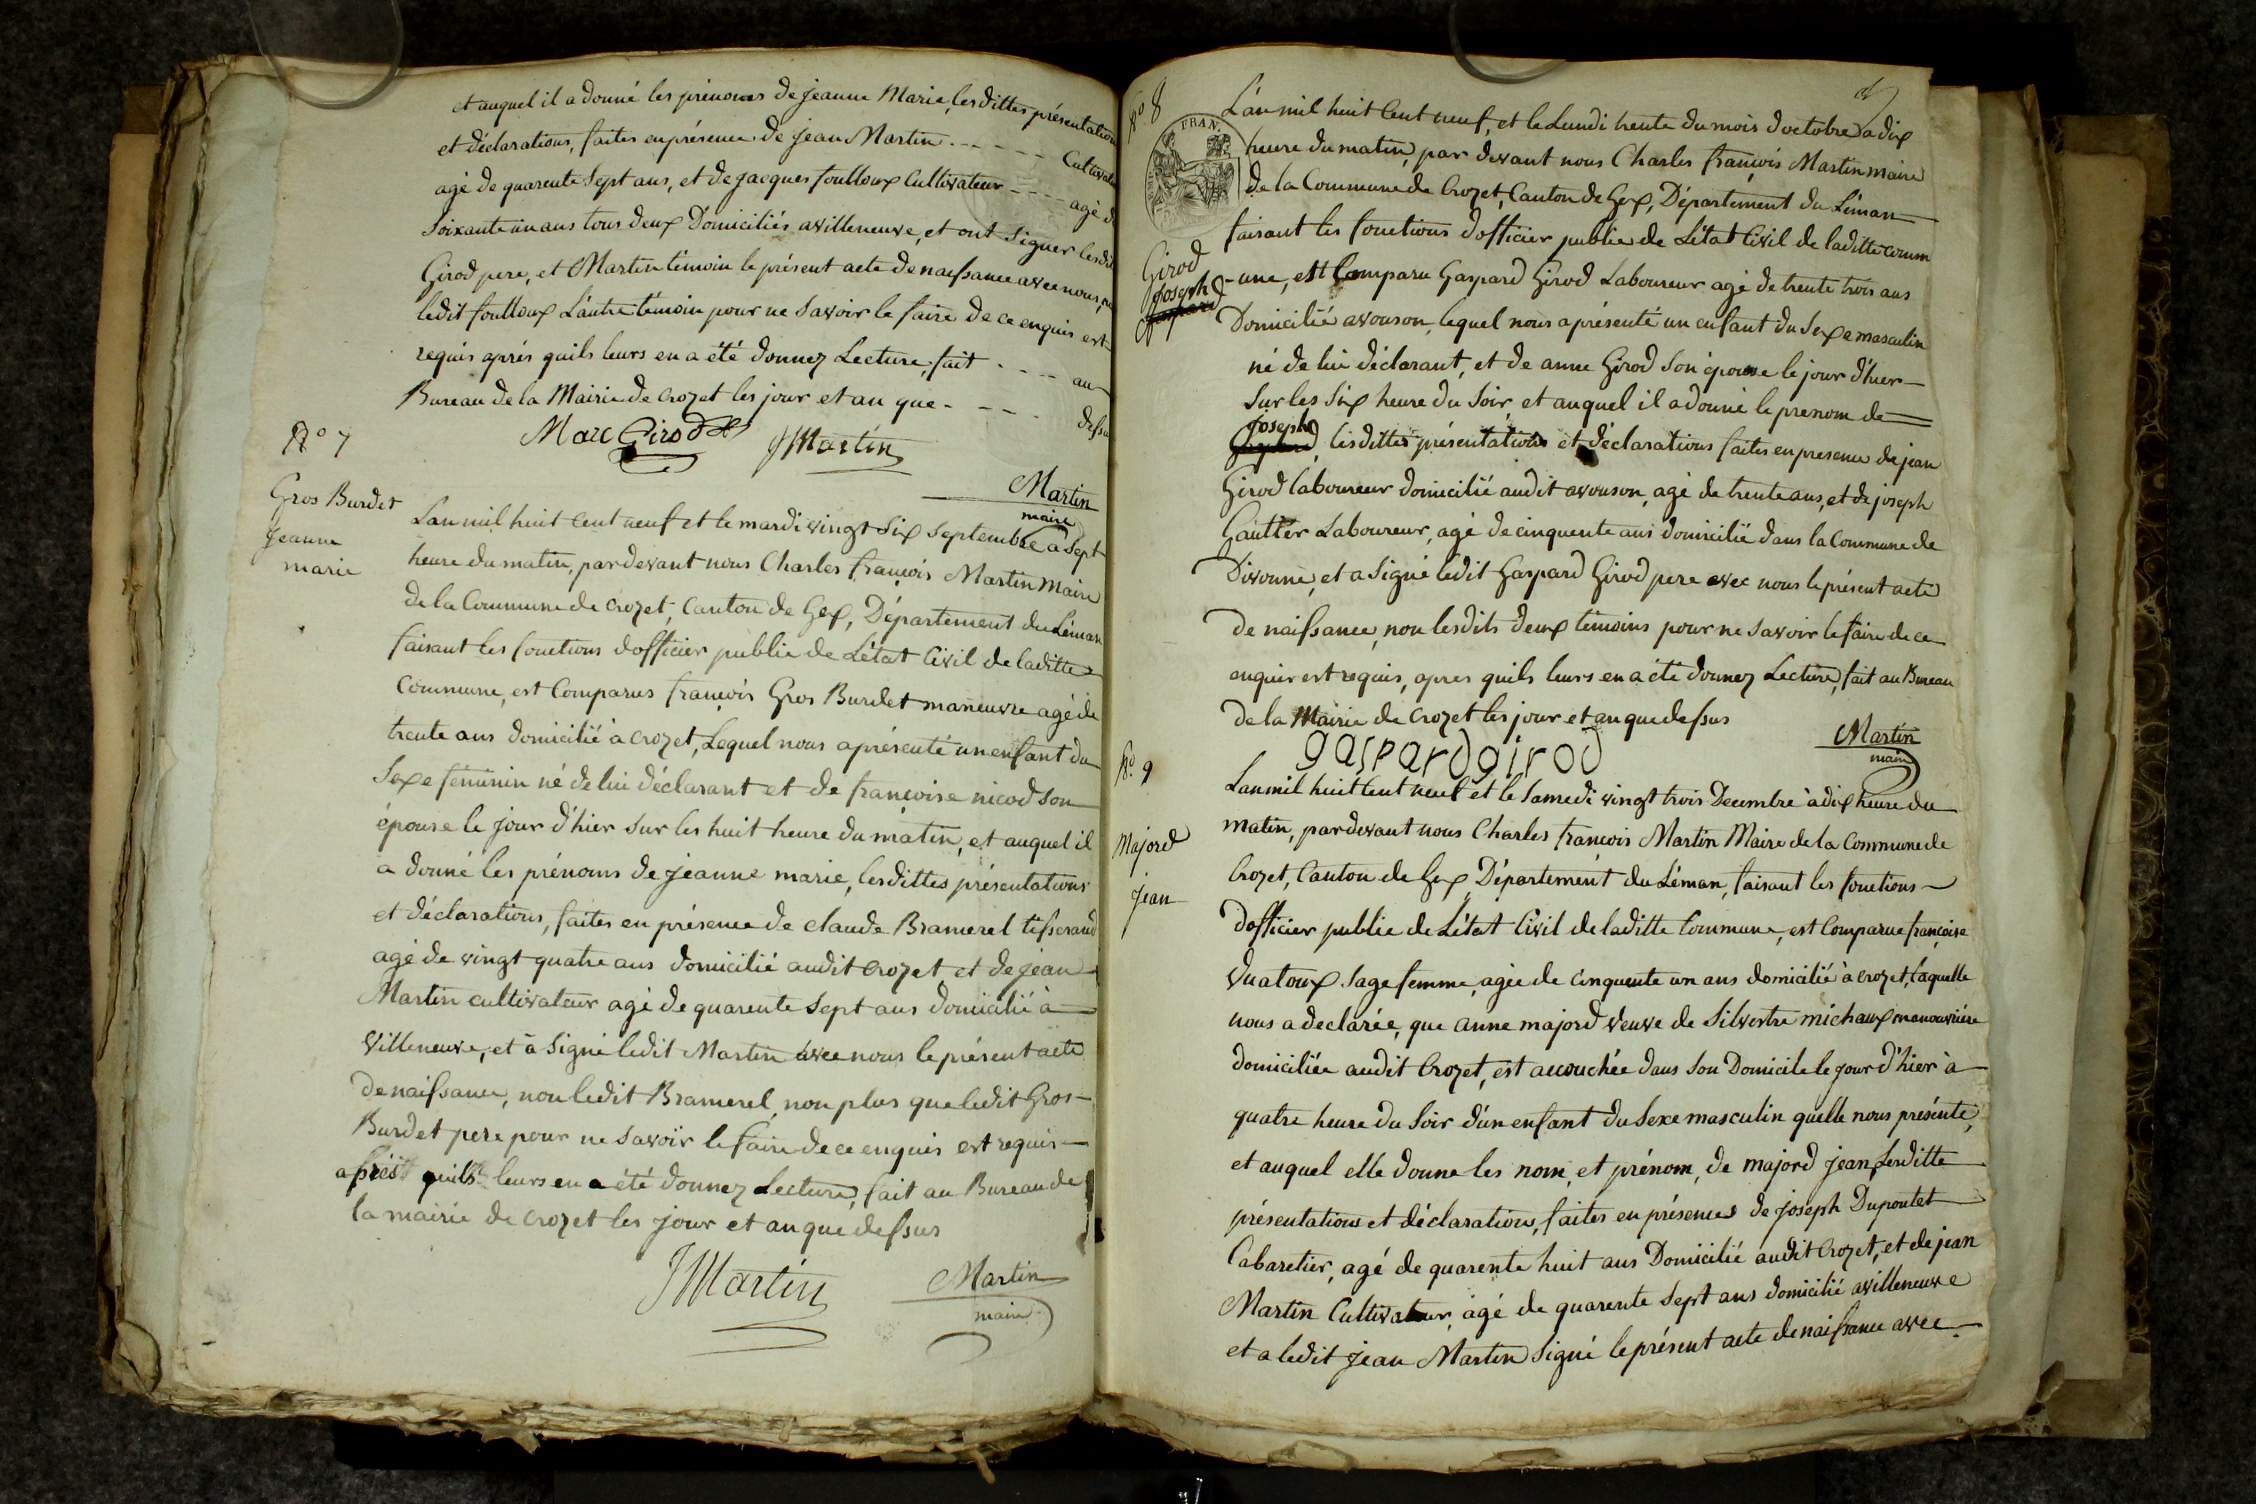 et auquel il a donné les prénoms de jeanne Marie, lesdittes présentations
et déclarations, faites en présence de jean Martin - - - - - - Cultivateur
agé de quarente Sept ans, et de jacques foulloux Cultivateur - - - - agé de
Soixante un ans tous deux Domiciliés avilleneuve, et ont Signer lesdit
Girod pere, et Martin témoin le présent acte de naissance avec nous, non
ledit foulloux L'autre témoin pour ne Savoir le faire de ce enquis est
requis après quils leurs en a été donnez Lecture, fait - - - - au
Bureau de la Mairie de Crozet les jour et an que - - - - dessus
Marc Girod JMartin
Martin
maire
No 7
Gros Burdet
Jeanne
marie
Lan mil huit Cent neuf et le mardi vingt Six Septembre a Sept
heure du matin, par devant nous Charles françois Martin Maire
de la Commune de Crozet, Canton de Gex, Département du Léman
faisant les fonctions dofficier public de L'état Civil de laditte
Commune, est Comparus françois Gros Burdet maneuvre agé de
trente ans domicilié à Crozet, Lequel nous a présenté un enfant du
Sexe féminin né de lui déclarant et de françoise nicod son
épouse le jour d'hier sur les huit heure du matin, et auquel il
a donné les prénoms de jeanne marie, lesdittes présentations
et déclarations, faites en présence de claude Bramerel tisserand
agé de vingt quatre ans domicilié audit Crozet et de jean
Martin cultivateur agé de quarente Sept ans domicilié à
Villeneuve, et à Signé ledit Martin avec nous le présent acte
de naissance, non ledit Bramerel non plus que ledit Gros
Burdet pere pour ne Savoir le faire de ce enquis est requis
après quils leurs en a été donnez Lecture, fait au Bureau de
la mairie de Crozet les jour et an que dessus
JMartin
Martin
maire
No 8
FRAN.
Girod
Joseph
Gaspard
L'an mil huit Cent neuf, et le Lundi trente du mois d'octobre a dix
heure du matin, par devant nous Charles françois Martin maire
de la Commune de Crozet, Canton de Gex, Département du Léman
faisant les fonctions dofficier public de L'état Civil de laditte comm
-une, est Comparu Gaspard Girod Laboureur agé de trente trois ans
Domicilié avouson, lequel nous a présenté un enfant du Sexe masculin
né de lui déclarant, et de anne Girod Son épouse le jour d'hier
Sur les Six heure du Soir, et auquel il a donné le prenom de
Joseph
Gaspard, lesdittes présentations et déclarations faites en presence de jean
Girod laboureur domicilié audit avouson, agé de trente ans, et de joseph
Gautier Laboureur, agé de cinquente ans domicilié dans la Commune de
Divonne, et a Signé ledit Gaspard Girod pere avec nous le présent acte
de naissance, non lesdits deux témoins pour ne Savoir le faire de ce
enquis est requis, apres quils leurs en a été donnez Lecture, fait au Bureau
de la Mairie de Crozet les jour et an que dessus
gaspard girod
Martin
maire
No 9
Majord
Jean
Lan mil huit Cent neuf et le Samedi vingt trois Decembre à dix heure du
matin, par devant nous Charles françois Martin Maire de la Commune de
Crozet, Canton de Gex, Département du Léman, faisant les fonctions
dofficier public de L'état Civil de laditte Commune, est Comparue françoise
Vuatoux Sage femme, agée de Cinquente un ans domicilié à Crozet, laquelle
nous a declarée, que anne majord veuve de Silvestre michaux manouvrière
domiciliée audit Crozet, est accouchée dans Son Domicile le jour d'hier à
quatre heure du Soir d'un enfant du Sexe masculin quelle nous présente,
et auquel elle donne les nom, et prénom, de majord jean, lesditte
présentations et déclaration, faites en présences de joseph Dupontet
Cabaretier, agé de quarente huit ans Domicilié audit Crozet, et de jean
Martin Cultivateur, agé de quarente Sept ans domicilié avilleneuve
et a ledit jean Martin Signé le présent acte de naissance avec